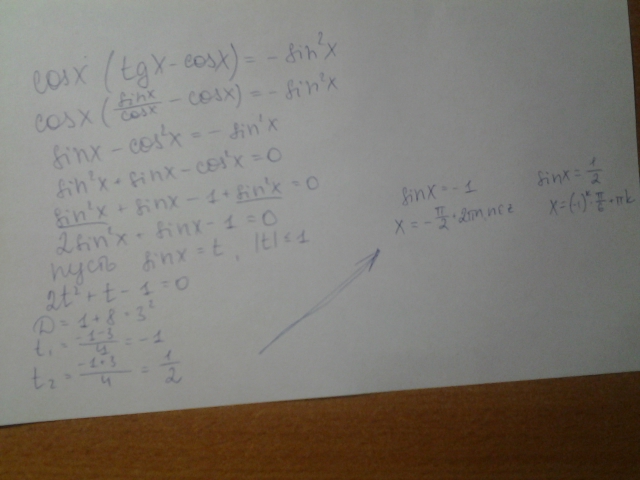 cosx (tgx - cosx) = - sin²x
cosx ( sinx/cosx - cosx) = - sin²x
sinx - cos²x = - sin²x
sin²x + sinx - cos²x = 0
sin²x + sinx - 1 + sin²x = 0
2sin²x + sinx - 1 = 0
пусть sinx = t, |t| ≤ 1
2t² + t - 1 = 0
D = 1 + 8 = 3²
t₁ = (-1-3)/4 = -1
t₂ = (-1+3)/4 = 1/2
sinx = -1
x = - π/2 + 2πn, n∈z
sinx = 1/2
x = (-1)ᵏ · π/6 + πk